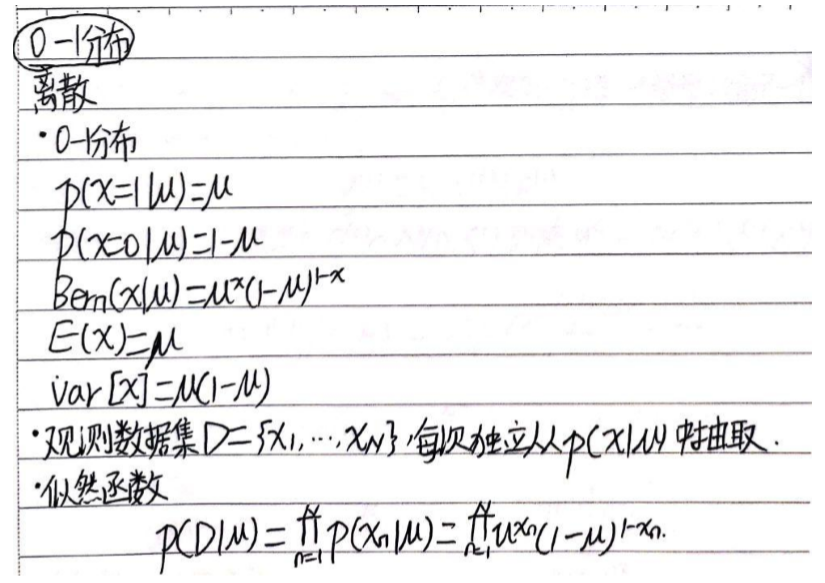 0-1分布
离散
·0-1分布
p(x=1|μ)=μ
p(x=0|μ)=1-μ
Bern(x|μ)=μˣ(1-μ)¹⁻ˣ
E(x)=μ
var[x]=μ(1-μ)
·观测数据集D={x₁,…,x_N},每次独立从p(x|μ)中抽取.
·似然函数
p(D|μ)=∏_{n=1}^{N} p(x_n|μ)=∏_{n=1}^{N} μ^{x_n}(1-μ)^{1-x_n}.